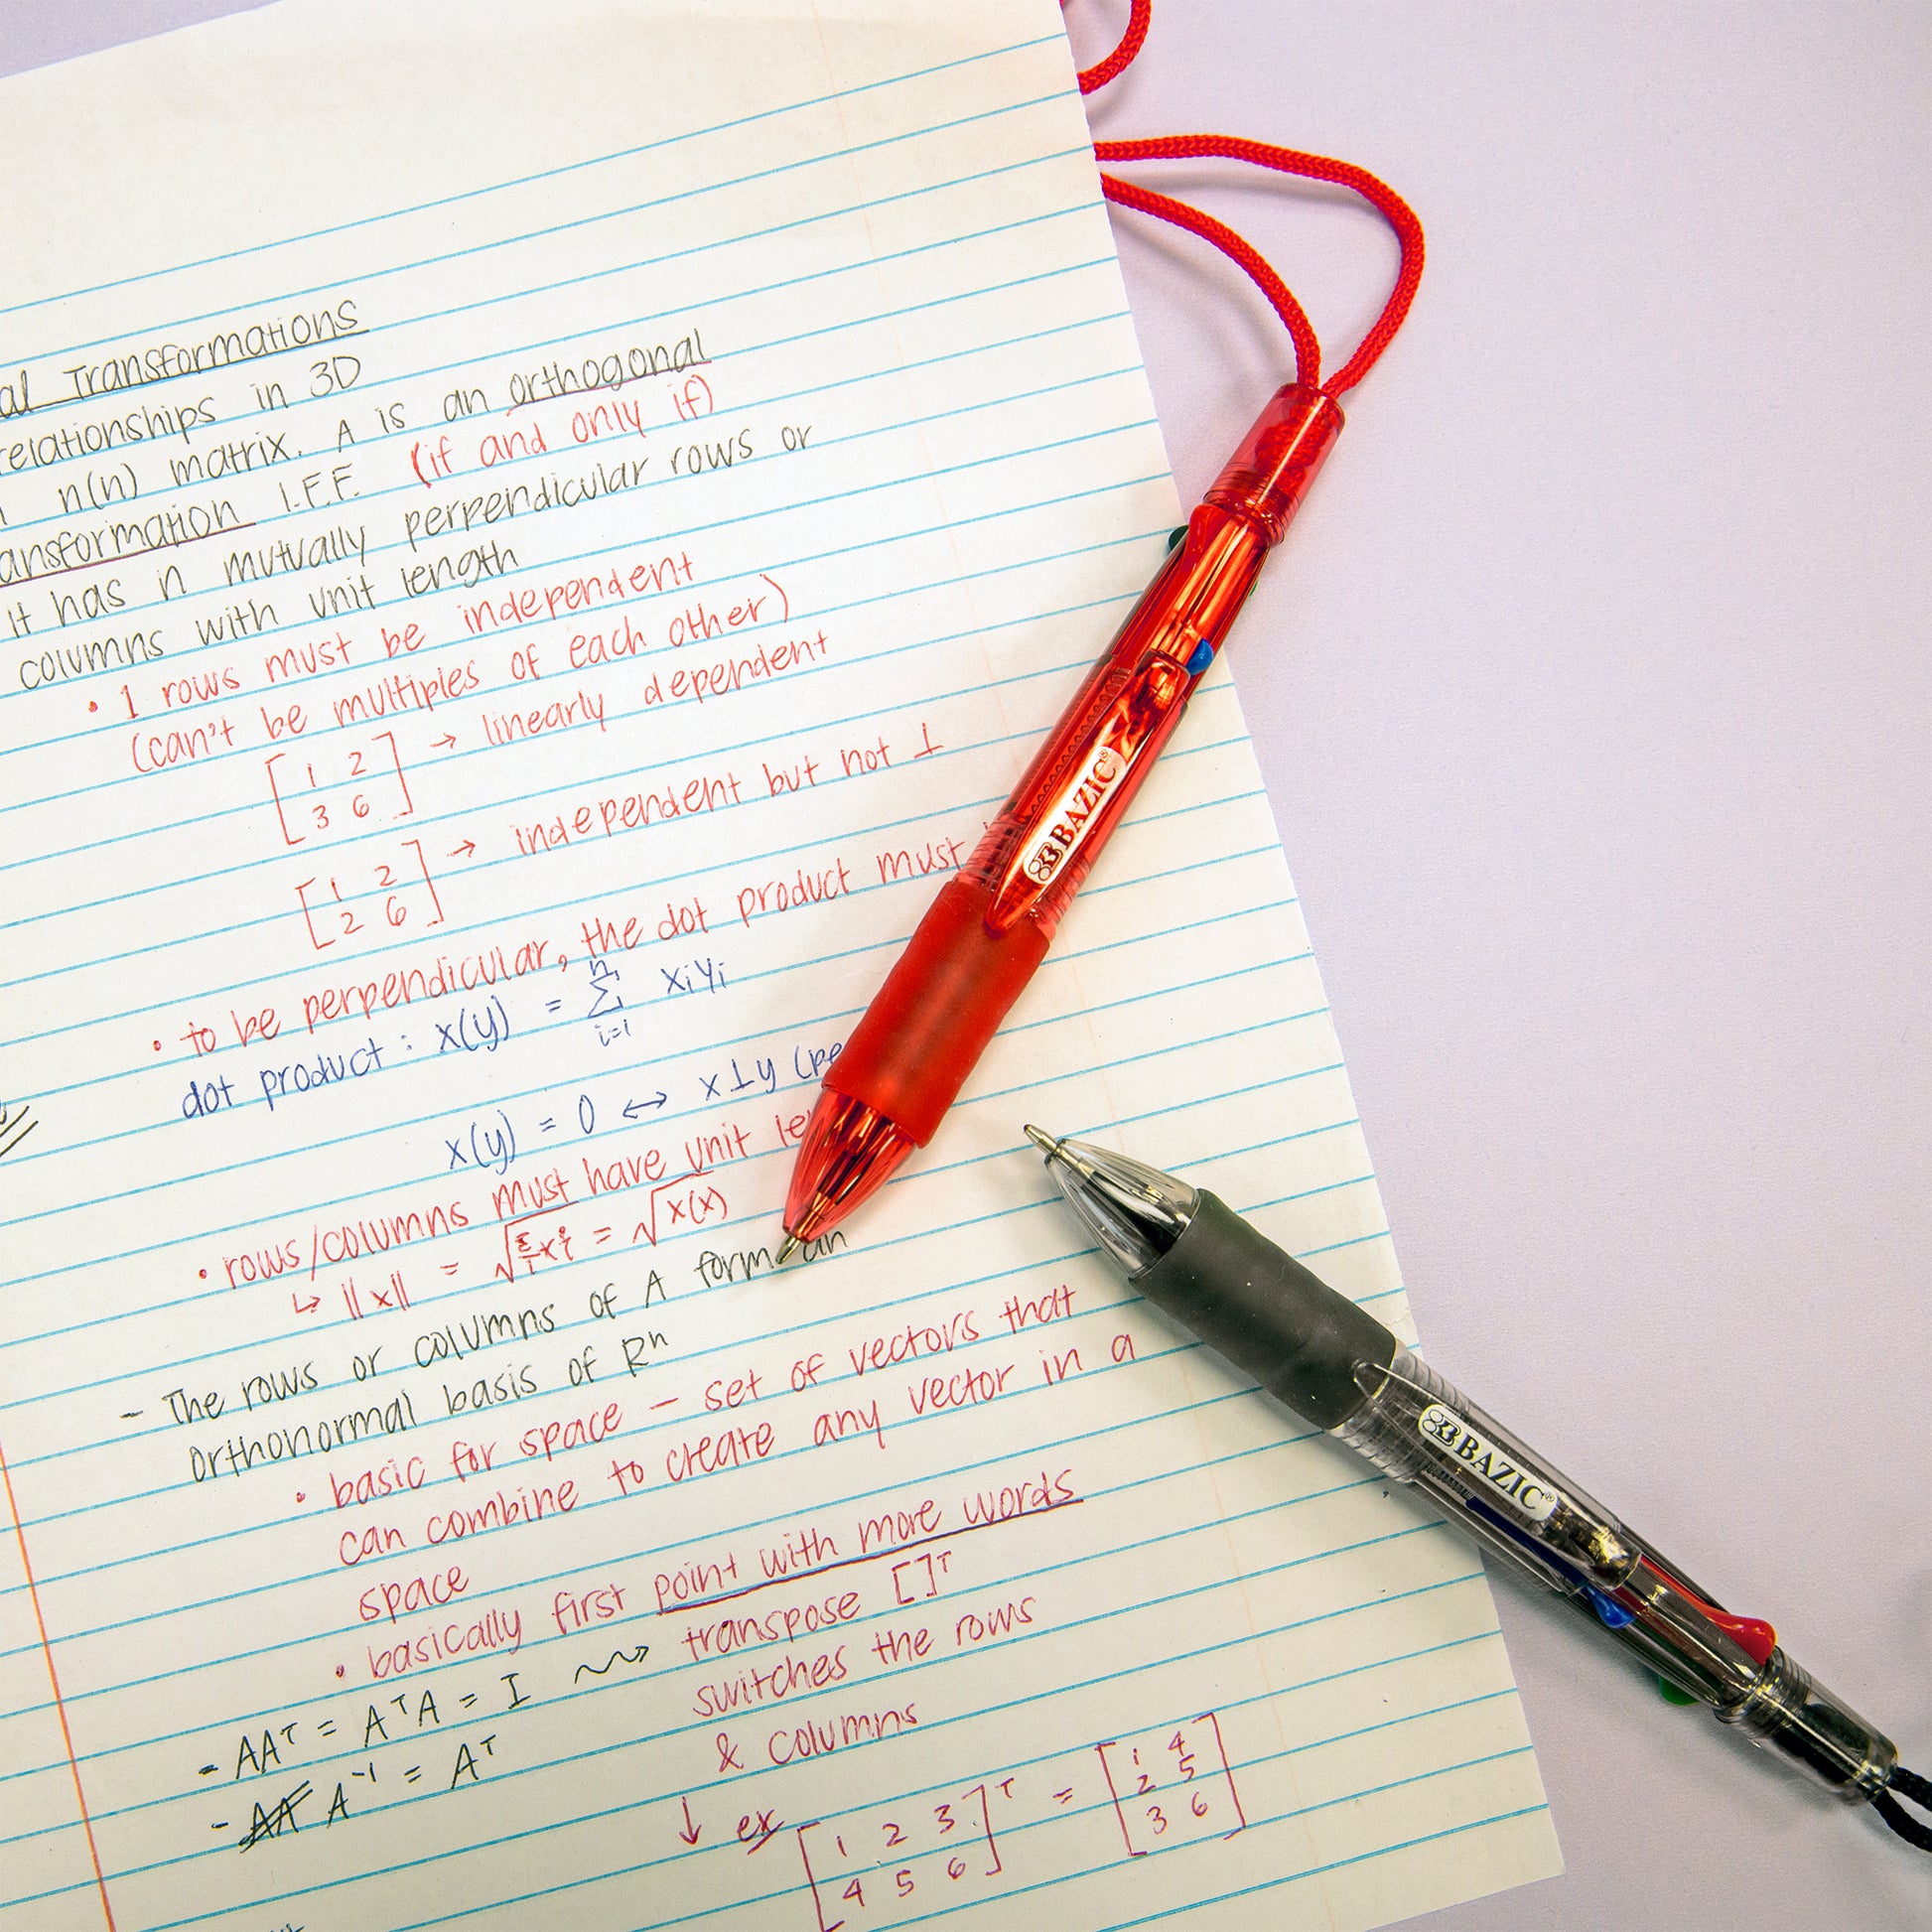 al Transformations
relationships in 3D
n(n) matrix. A is an orthogonal
ansformation I.F.F. (if and only if)
It has n mutually perpendicular rows or
columns with unit length
• 1 rows must be independent
(can't be multiples of each other)
[1 2
3 6] → linearly dependent
[1 2
2 6] → independent but not ⊥
• to be perpendicular, the dot product must
dot product : x(y) = n Σ i=1 xiyi
x(y) = 0 ↔ x⊥y (pe
• rows/columns must have unit le
↳ ||x|| = = √x(x)
- The rows or columns of A form an
orthonormal basis of Rⁿ
• basic for space - set of vectors that
can combine to create any vector in a
space
• basically first point with more words
- AAᵀ = AᵀA = I ⇝ transpose []ᵀ
switches the rows
& columns
- A⁻¹ = Aᵀ
↓ ex
[1 2 3
4 5 6]ᵀ = [1 4
2 5
3 6]
BAZIC®
BAZIC®